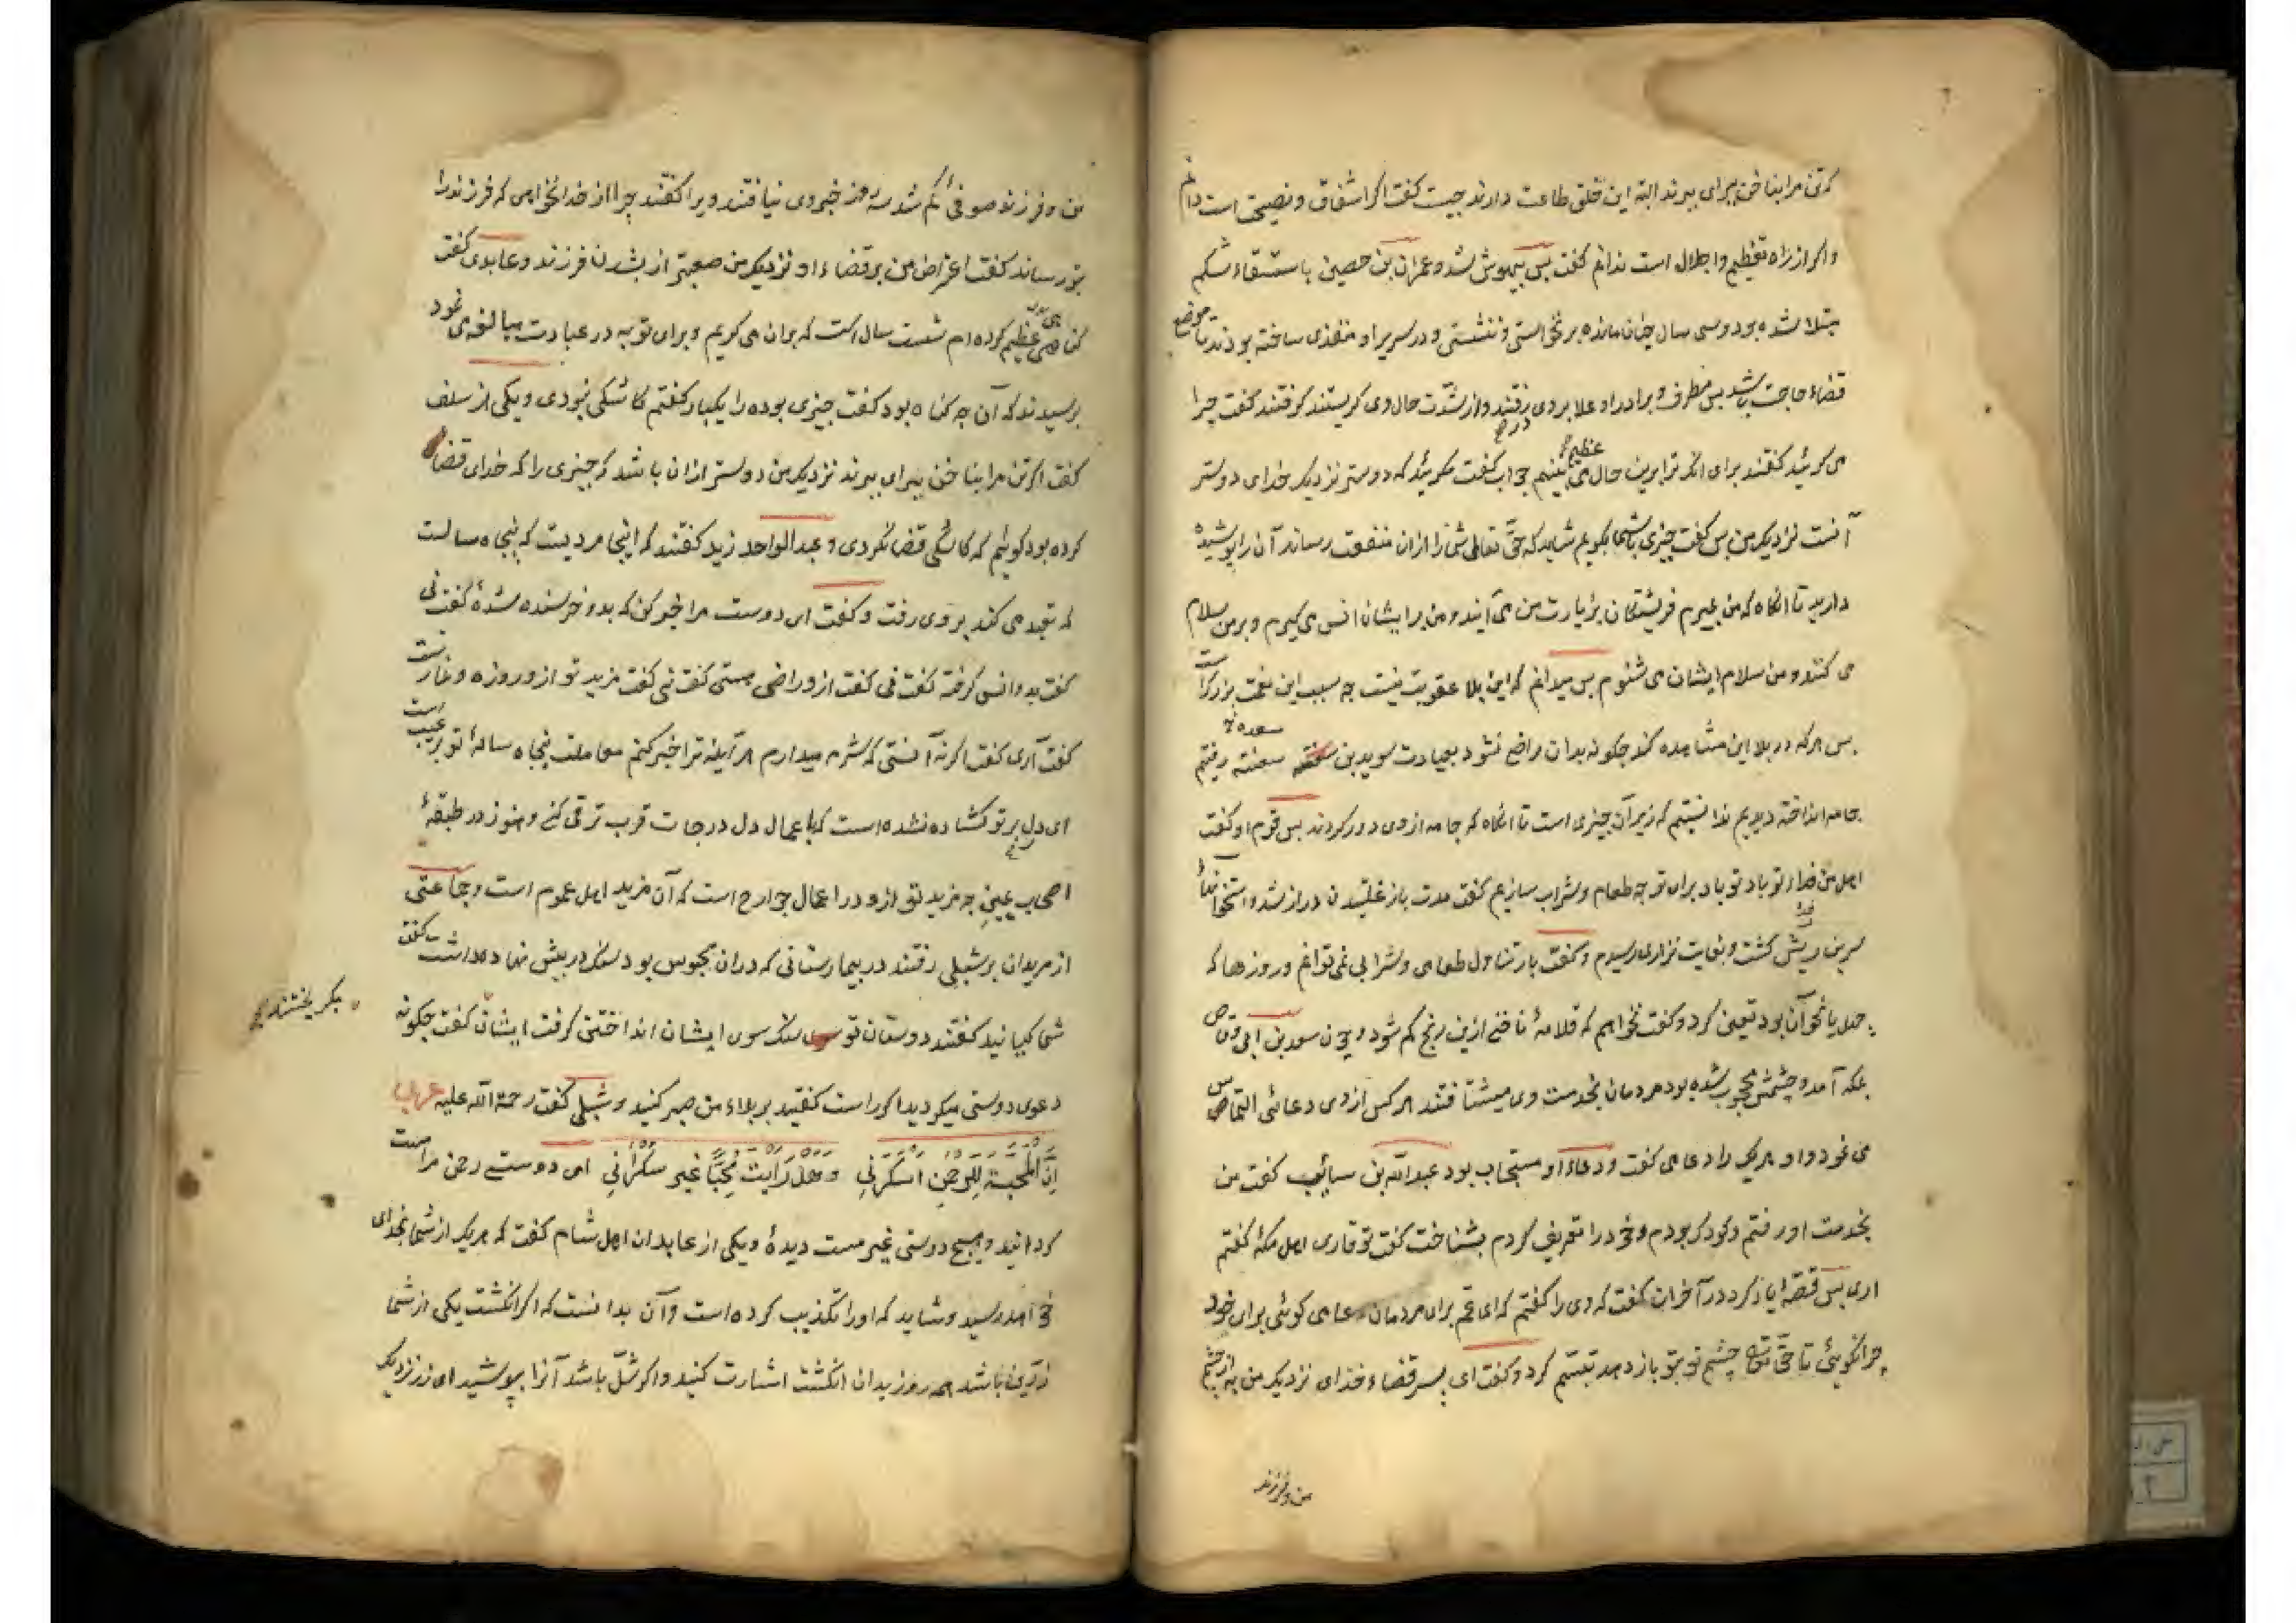 که تن مرا بناخن ببرای ببرند البته این خلق طاعت دارند چیست گفت اگر اشفاق و نصیحت است دانم
واگر از راه تعظیم و اجلال است ندانم گفت پس بیهوش شد و عمران بن حصین باستسقاء شکم
مبتلا شده بود و سی سال چنان مانده برنخواستی و ننشستی و در سریر او منفذی ساخته بودند تا موضع
قضاء حاجت باشد پس مطرف و برادر او علا بروی رفتند و از شدت حال وی گریستند گرفتند گفت چرا
می گریید گفتند برای آنکه ترا برین حال عظیم می بینیم جواب گفت مگریید که دوستر نزدیک خدای دوستر
آنست نزدیک من پس گفت چیزی باشما بگویم شاید که حق تعالی شما را ازان منفعت رساند آن را پوشیده
دارید تا آنگاه که من بمیرم فریشتگان بزیارت من می آیند و من برایشان انس می گیرم و بر من سلام
می کنند و من سلام ایشان می شنوم پس میدانم که این بلا عقوبت نیست چه سبب این نعمت بزرگ است
پس هرکه در بلا این مشاهده کند چگونه بدان راضی نشود بعیادت سوید بن سعته رفتیم
جامه انداخته دیدیم ندانستیم که زیر آن چیزی است تا آنگاه که جامه از وی دور کردند پس قوم او گفت
اهل من فداء تو باد برای تو چه طعام و شراب سازیم گفت مدت باز غلتیدن دراز شد و استخوانهاء
سرین ریش گشت و بغایت نزاری رسیدم و گفت بار تناول طعامی و شرابی نمی توانم و روزها که
حد یا نحو آن بود تعیین کرد و گفت نخواهم که قلامهٔ ناخنی ازین رنج کم شود و چون سعد بن ابی وقاص
بمکه آمد و چشمش محجوب شده بود مردمان بخدمت وی میشتافتند هر کس از وی دعائی التماس
می نمود و او هر یک را دعا می گفت و دعاء او مستجاب بود عبدالله بن سائب گفت من
بخدمت او رفتم و کودک بودم و خود را تعریف کردم بشناخت گفت تو قاری اهل مکهٔ گفتم
اری پس قصه ایاد کرد در آخر آن گفت که وی را گفتم که ای عم برای مردمان دعا می گوئی برای خود
چرا نگوئی تا حق تعالی چشم تو بتو باز دهد تبسم کرد و گفت ای پسر قضاء خدای نزدیک من به از چشم
من و فرزند
من و فرزند صوفئ گم شد سه روز خبر وی نیافتند ویرا گفتند چرا از خدا نخواهی که فرزند را
بتو رساند گفت اعتراض من بر قضاء او نزدیک من صعبتر از بشدن فرزند و عابدی گفت
گناهی عظیم کرده ام شست سال است که بران می گریم و برای توبه در عبادت مبالغه می نمود
پرسیدند که آن چه گناه بود گفت چیزی بوده را یکبار گفتم کاشکی نبودی و یکی از سلف
گفت اگر تن مرا بناخن ببرای ببرند نزدیک من دوستر ازان باشد که چیزی را که خدای قضا
کرده بود گویم که کاشکی قضا نکردی و عبدالواحد زید گفتند که اینجا مردیست که پنجاه سالست
که تعبد می کند بر وی رفت و گفت ای دوست مرا خبر کن که بدو خرسنده شدهٔ گفت نی
گفت بدو انس گرفته گفت نی گفت ازو راضی هستی گفت نی گفت مزید تو ازو روزه و نماز است
گفت آری گفت اگر نه آنستی که شرم میدارم هرآینه ترا خبر کنم معاملت پنجاه سالهٔ تو بر عیب است
ای دل بر تو گشاده نشده است که باعمال دل درجات قرب ترقی کنی و هنوز در طبقهٔ
اصحاب یمینی چه مزید تو ازو در اعمال جوارح است که آن مزید اهل عموم است و جماعتی
از مریدان بر شبلی رفتند در بیمارستانی که دران محبوس بود سنگ در پیش نهاده داشت گفت
شما کیانید گفتند دوستان تو سنگ سوی ایشان انداختن گرفت ایشان گفت چگونه
بگریختند
دعوی دوستی میکردید اگر راست گفتید بر بلاء من صبر کنید و شبلی گفت رحمة الله علیه
اِنَّ الْمَحَبَّةَ لِلرَّحْمٰنِ اَسْكَرَنِي وَهَلْ رَأَيْتَ مُحِبًّا غَيْرَ سَكْرَانِ ای دوستی رحمن مرا مست
گردانید و هیچ دوستی غیر مست دیدهٔ و یکی از عابدان اهل شام گفت که هر یک از شما بخدای
خواهد رسید و شاید که او را تکذیب کرده است و آن بدانست که اگر انگشت یکی از شما
زرین باشد همه روز بدان انگشت اشارت کنید و اگر شل باشد آنرا بپوشید ای زر نزدیک